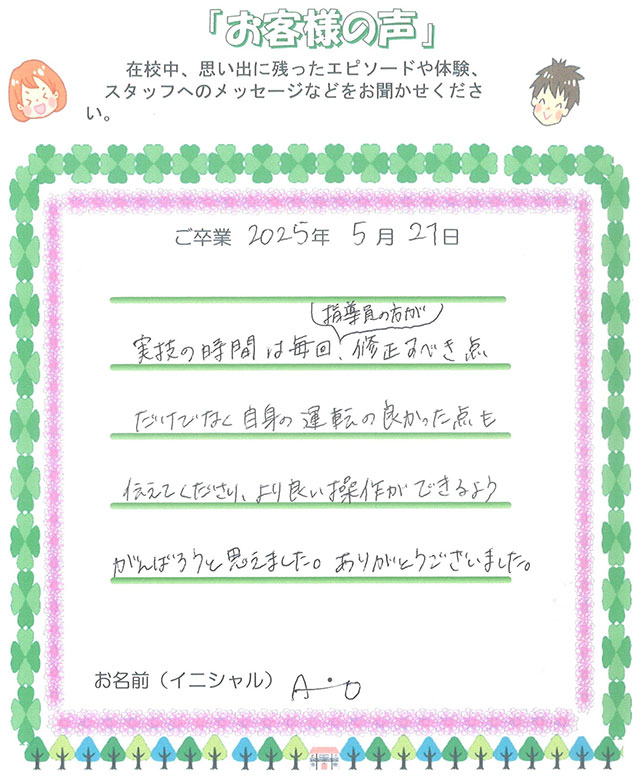 「お客様の声」
在校中、思い出に残ったエピソードや体験、
スタッフへのメッセージなどをお聞かせくださ
い。
ご卒業 2025年 5月 27日
指導員の方が
実技の時間は毎回、修正すべき点
だけでなく自身の運転の良かった点も
伝えてくださり、より良い操作ができるよう
がんばろうと思えました。ありがとうございました。
お名前（イニシャル） A・O